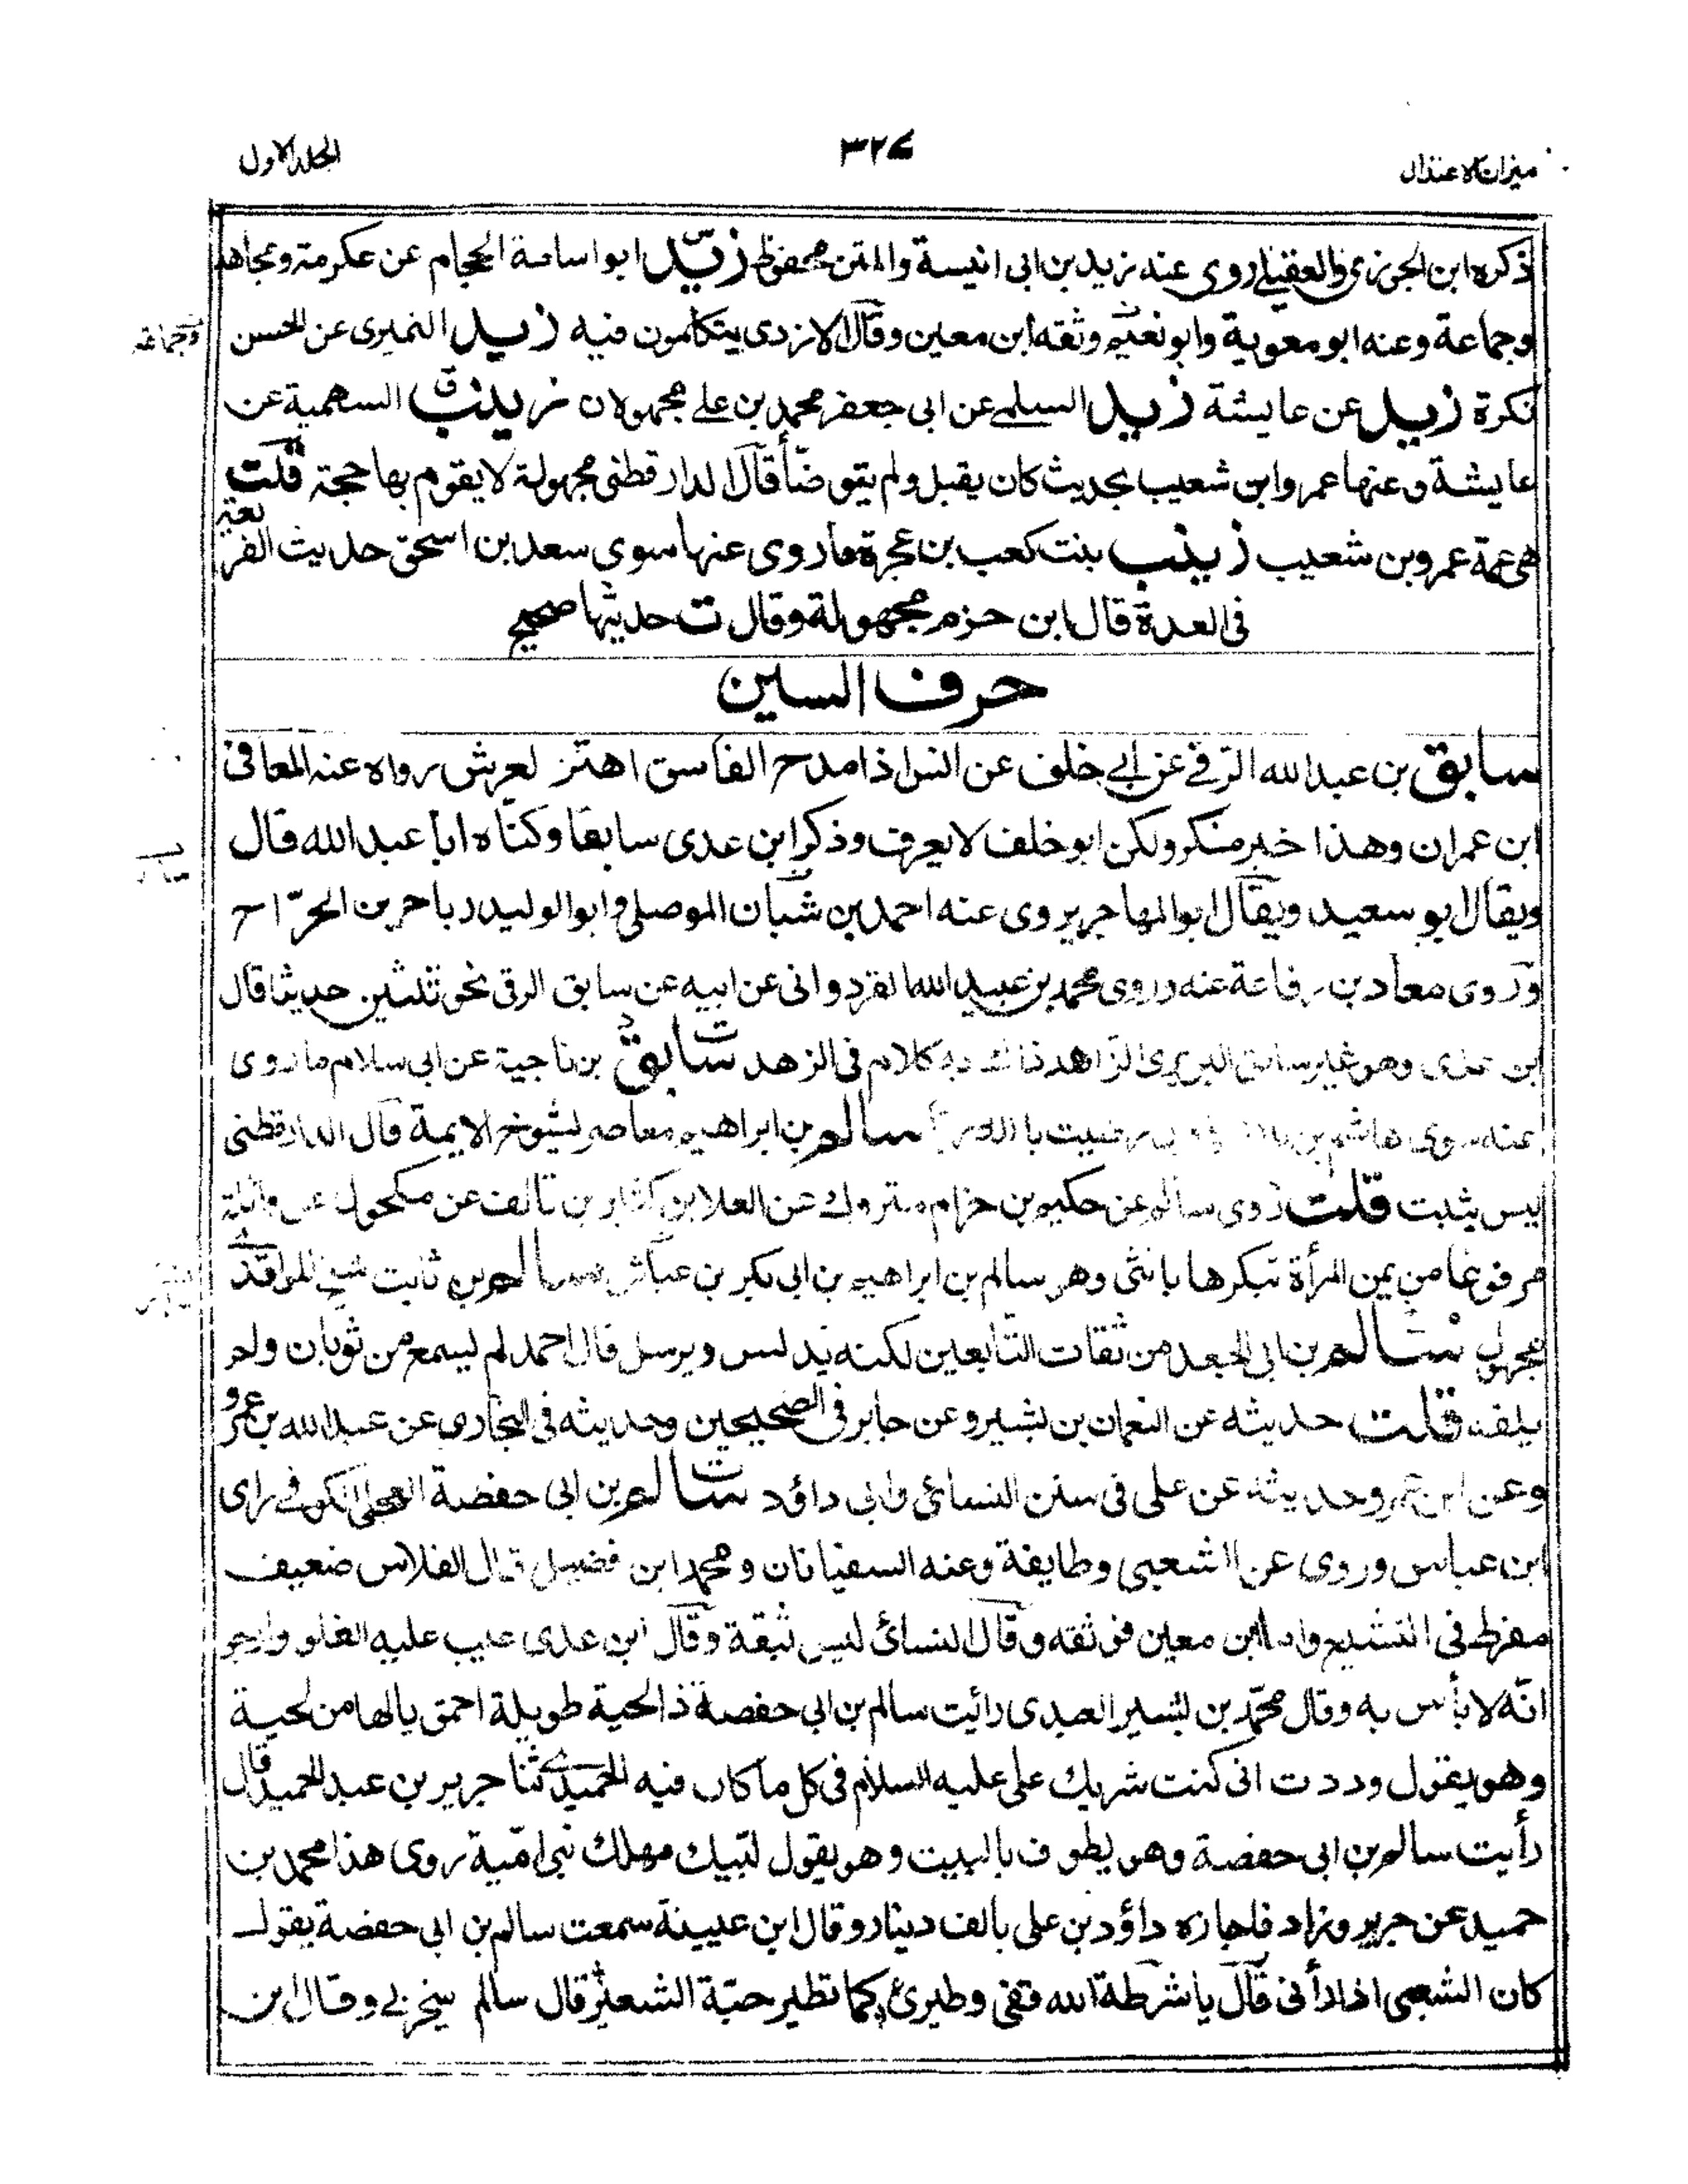 ميزان الاعتدال
٣٢٧
الجلد الاول
ذكره ابن الجوزي والعقيلے روى عنه زيد بن ابى انيسة والمتن محفوظ زيد ابو اسامة الحجام عن عكرمة ومجاهد
وجماعة وعنه ابو معوية وابو نعيم وثقه ابن معين وقال الازدى يتكلمون فيه زيد النميرى عن الحسن
نكرة زيد عن عايشة زيد السلمے عن ابى جعفر محمد بن علے مجهولان زينب ق السهمية عن
عايشة وعنها عمرو ابن شعيب بحديث كان يقبل ولم يتوضأ قال الدارقطنى مجهولة لا يقوم بها حجة قلت
هى عمة عمرو بن شعيب زينب بنت كعب بن عجرة ما روى عنها سوى سعد بن اسحق حديث الفريعة
فى العدة قال ابن حزم مجهولة وقال ت حديثها صحيح
حرف السين
سابق بن عبد الله الرقے عن ابے خلف عن انس اذا مدح الفاسق اهتز لعرش رواه عنه المعافى
ابن عمران وهذا خبر منكر ولكن ابو خلف لا يعرف وذكر ابن عدى سابقا وكناه ابا عبد الله قال
ويقال ابو سعيد ويقال ابو المهاجر يروى عنه احمد بن شبان الموصلى وابو الوليد رباح بن الجراح
وروى معاد بن رفاعة عنه وروى محمد بن عبيد الله القردوانى عن ابيه عن سابق الرقى نحو ثلثين حديثا قال
ابن عدى وهو غير سابق البربرى الزاهد ذاك له كلام فى الزهد سابق د بن ناجية عن ابى سلام ما روى
عنه سوى هاشم بن رضيت بالله ربا سالم بن ابراهيم معاصر لشيوخ الايمة قال الدارقطنى
ليس يثبت قلت روى سالم عن حكيم بن حزام متروك عن العلا بن كثير بن تالف عن مكحول عن واثلة
مرفوعا من يمن المرأة تبكرها بانثى وهو سالم بن ابراهيم بن ابى بكر بن عباش سالم بن ثابت شيخ للواقدے
مجهول سالم ع بن ابى الجعد من ثقات التابعين لكنه يدلس ويرسل قال احمد لم يسمع من ثوبان ولم
يلقه قلت حديثه عن النعمان بن بشير وعن جابر فى الصحيحين وحديثه فى البخارى عن عبد الله بن عمرو
وعن ابن عمر وحديثه عن على فى سنن النسائى وابى داؤد سالم ت بن ابى حفصة العجلى الكوفے راى
ابن عباس وروى عن الشعبى وطايفة وعنه السفيانان ومحمد ابن فضيل قال الفلاس ضعيف
مفرط فى التشيع واما ابن معين فوثقه وقال النسائى ليس ثبقة وقال ابن عدى عيب عليه الغلو وارجو
انه لا بأس به وقال محمد بن بشير العبدى رائيت سالم بن ابى حفصة ذا لحية طويلة احمق يالها من لحية
وهو يقول وددت انى كنت شريك على عليه السلام فى كل ما كان فيه الحميدے ثنا جرير بن عبد الحميد قال
رأيت سالم بن ابى حفصة وهو يطوف بالبيت وهو يقول لبيك مهلك بنى امية روى هذا محمد بن
حميد عن جرير وزاد فاجازه داؤد بن على بالف دينار وقال ابن عيينة سمعت سالم بن ابى حفصة يقول
كان الشعبى اذا رأنى قال ياشرطة الله قفى وطيرى كما تطير حبة الشعير قال سالم يسخر بے وقال ابن